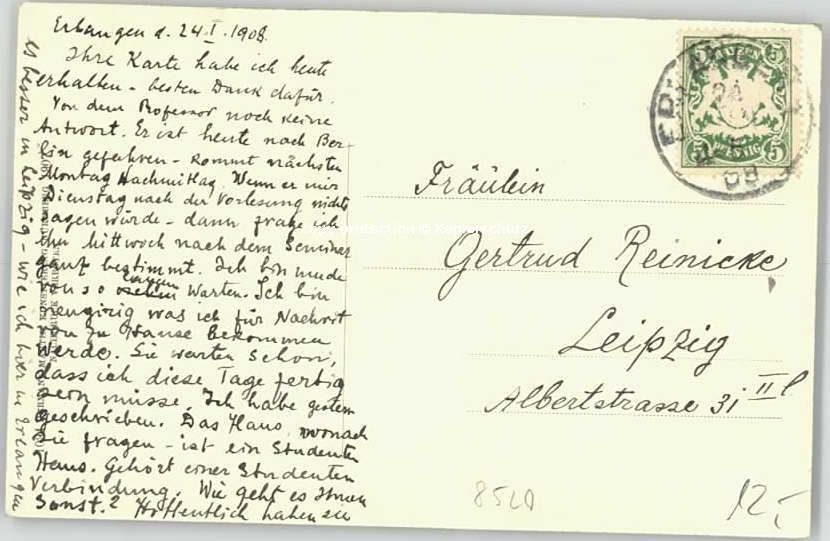 Erlangen d. 24.I.1908.
Ihre Karte habe ich heute
erhalten - besten Dank dafür.
Von dem Professor noch keine
Antwort. Er ist heute nach Ber-
lin gefahren - kommt nächsten
Montag Nachmittag. Wenn er mir
Dienstag nach der Vorlesung nichts
sagen würde - dann frage ich
ihn Mittwoch nach dem Seminar
ganz bestimmt. Ich bin müde
von so langem Warten. Ich bin
neugirig was ich für Nachrit
von zu Hause bekommen
werde. Sie warten schon,
dass ich diese Tage fertig
sein müsse. Ich habe gestern
geschrieben. Das Haus, wonach
Sie fragen - ist ein Studenten
Haus. Gehört einer Studenten
Verbindung. Wie geht es Ihnen
sonst? Hoffentlich haben sie
es besser in Leipzig - wie ich hier in Erlangen
Fräulein
Gertrud Reinicke
Leipzig
Albertstrasse 31 II l
5 5
5 PFENNIG 5
ERLANGEN
24
08
protection © Kopierschutz
12,-